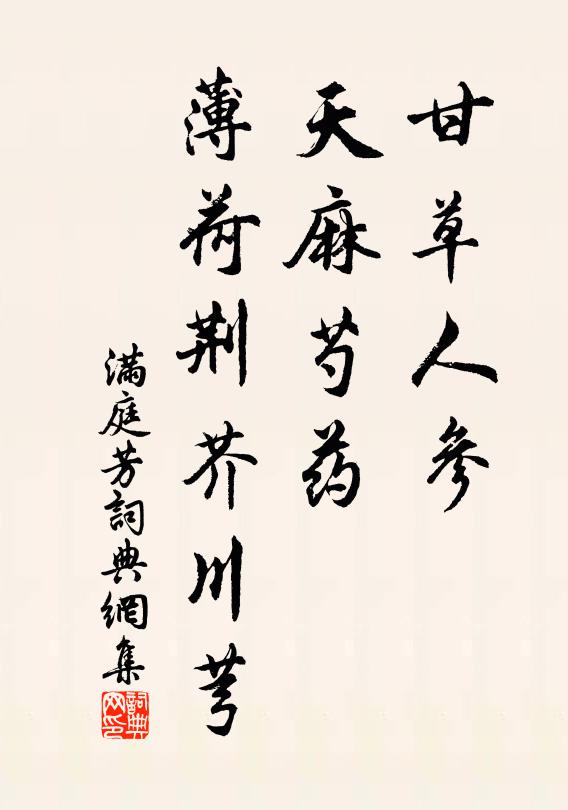 甘草人參
天麻芍药
薄荷荆芥川芎
滿庭芳詞典網集
詞典网印